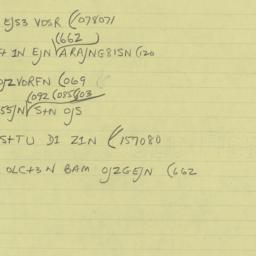 EJS3 VDSR (078071
(662
+ IN EJN ARAJNG8ISN (120
OJZVORFN (069
(092 (085 (03
S5JN S+N OJS
S+TU DI ZIN (157080
OLC+3N BAM OJZGEJN (662